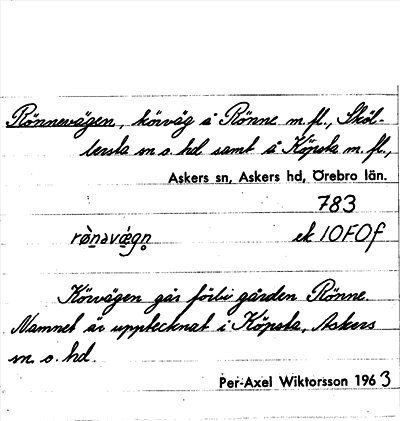 Rönnevägen, körväg å Rönne m. fl., Sköl-
lersta sn o. hd samt å Köpsta m. fl.,
Askers sn, Askers hd, Örebro län.
783
ek 10F0f
Körvägen går förbi gården Rönne.
Namnet är upptecknat i Köpsta, Askers
sn o. hd.
Per-Axel Wiktorsson 1963